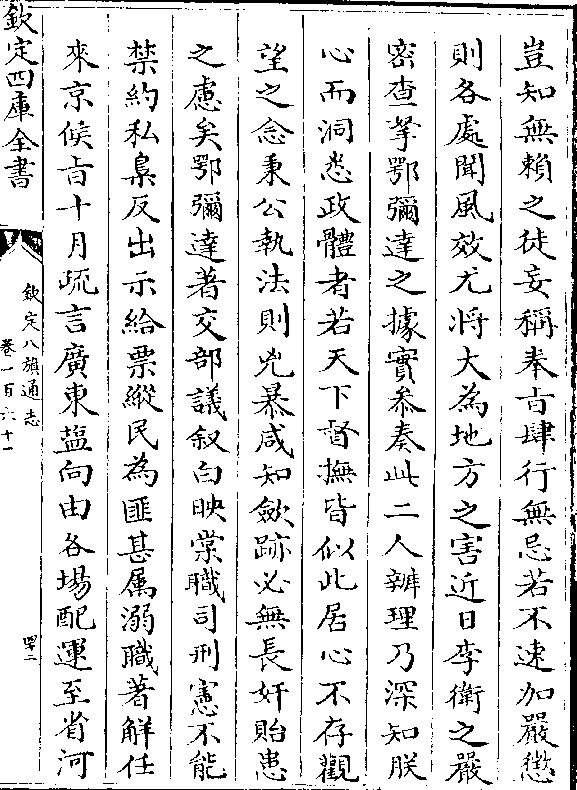 豈知無賴之徒妄稱奉㫖肆行無忌若不速加嚴懲
則各處聞風效尤將大為地方之害近日李衛之嚴
密查拏鄂彌達之據實參奏此二人辦理乃深知朕
心而洞悉政體者若天下督撫皆似此居心不存觀
望之念秉公執法則兇暴咸知斂跡必無長奸貽患
之慮矣鄂彌達著交部議叙白映棠職司刑憲不能
禁約私梟反出示給票縱民為匪甚属溺職著解任
來京候㫖十月疏言廣東鹽向由各場配運至省河
欽定四庫全書
欽定八旗通志
卷一百六十一
四十二